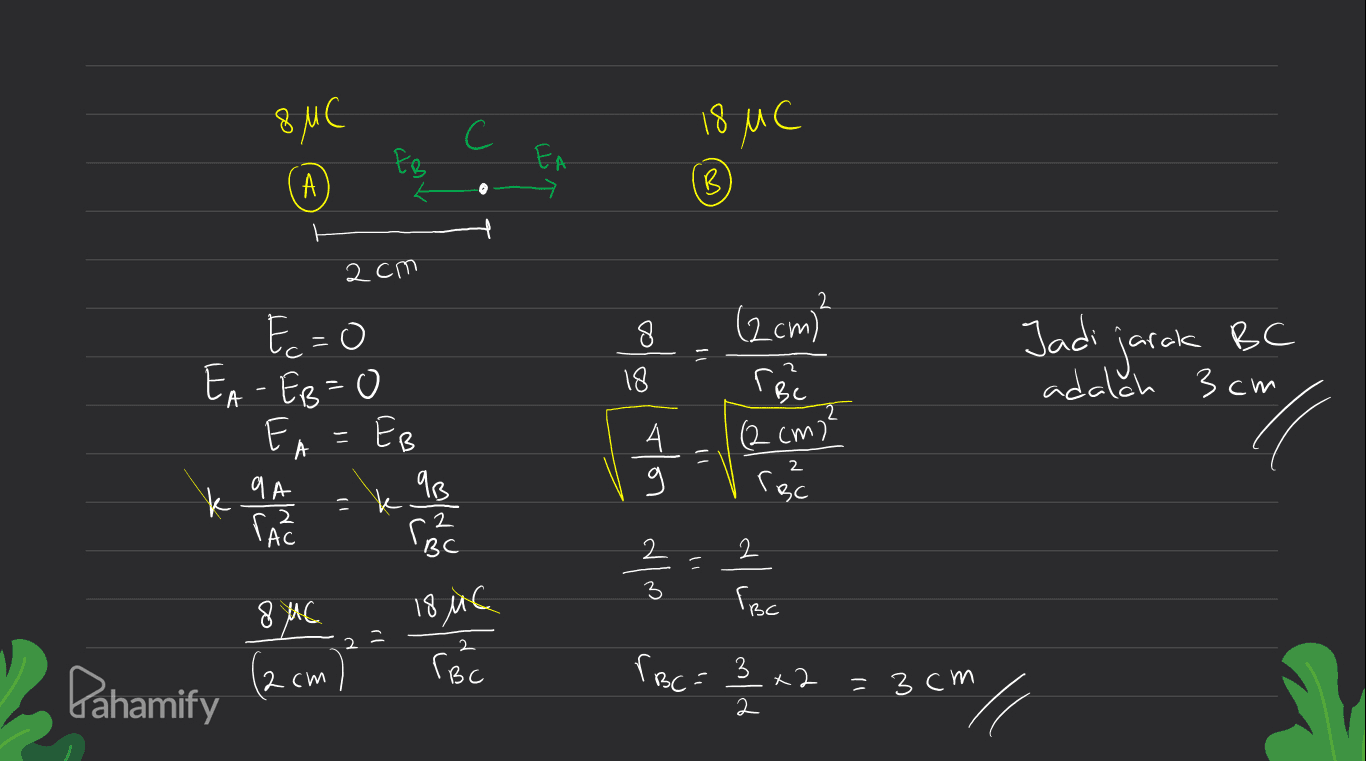 8 μC C 18 μC
EB EA
A B
2 cm
Ec = 0
EA - EB = 0
EA = EB
k qA/rAC² = k qB/rBC²
8 μC/(2 cm)² = 18 μC/rBC²
8/18 = (2 cm)²/rBC²
√4/9 = √(2 cm)²/rBC²
2/3 = 2/rBC
rBC = 3/2 x 2 = 3 cm //
Jadi jarak BC
adalah 3 cm //
Pahamify